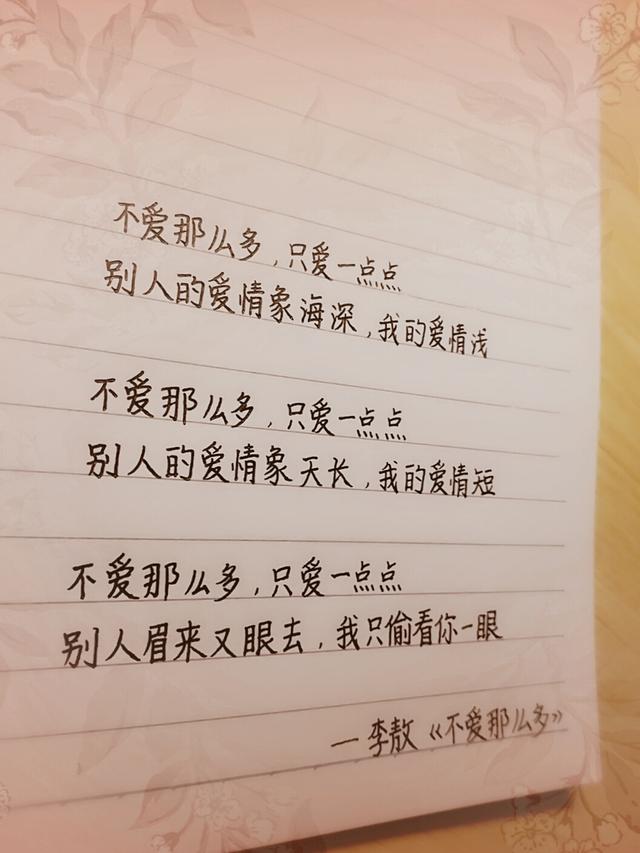 不爱那么多，只爱一点点
别人的爱情象海深，我的爱情浅
不爱那么多，只爱一点点
别人的爱情象天长，我的爱情短
不爱那么多，只爱一点点
别人眉来又眼去，我只偷看你一眼
— 李敖《不爱那么多》